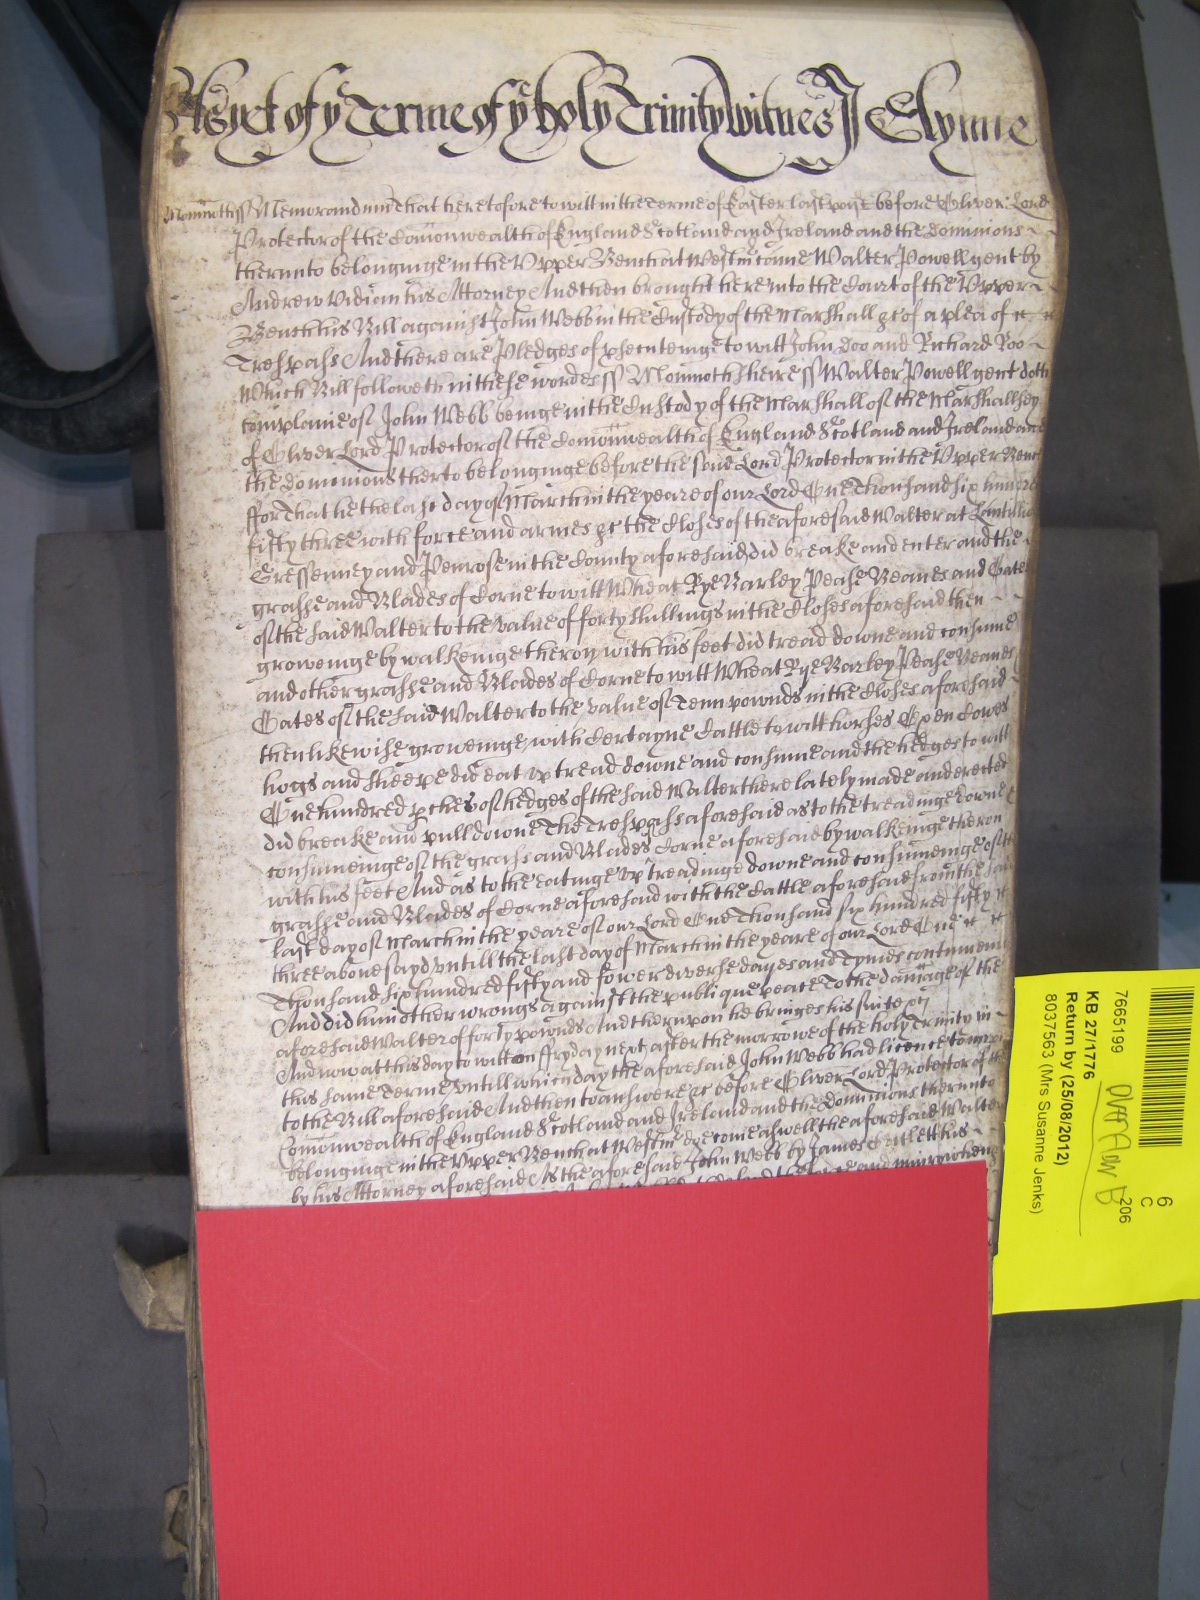 As yet of ye Terme of ye holy Trinity witnes J Glynne
Monmoth ss Memorandum That heretofore to witt in the terme of Easter last past before Oliver Lord
Protector of the Comonwealth of England Scotland and Ireland and the dominions
therunto belonginge in the Vpper Bench at Westm came Walter Powell gent by
Andrew Vidian his Attorney And then brought here into the Court of the Vpper
Bench his Bill against John Webb in the Custody of the Marshall &c of a plea of
Trespasse And there are Pledges of psecuteinge to witt John Doo and Richard Roo
Which Bill followeth in these wordes ss Monmoth sheire ss Walter Powell gent doth
complaine of John Webb beinge in the Custody of the Marshall of the Marshallsey
of Oliver Lord Protector of the Comonwealth of England Scotland and Ireland and
the dominions therto belonginge before the said Lord Protector in the Vpper Bench
ffor That he the last day of March in the yeare of our Lord One Thousand six hundred
fifty three with force and armes &c the Closes of the aforesaid Walter at
Gressenney and Penrose in the County aforesaid did breake and enter and the
grasse and Blades of Corne to witt Wheat Rye Barley Pease Beanes and Oates
of the said Walter to the value of forty shillings in the Closes aforesaid then
groweinge by walkeinge theron with his feet did tread downe and consume
and other grasse and Blades of Corne to witt Wheat Rye Barley Pease Beanes
Oates of the said Walter to the value of Tenn pownds in the Closes aforesaid
then likewise groweinge with Certayne Cattle to witt horses Oxen Cowes
hogs and sheepe did eat vp tread downe and consume and the hedges to witt
One hundred pches of hedges of the said Walter there lately made and erected
did breake and pull downe The Trespass aforesaid as to the treadinge downe
consumeinge of the grass and Blades Corne aforesaid by walkeinge theron
with his feet And as to the eatinge vp treadinge downe and consumeinge of the
grasse and Blades of Corne aforesaid with the Cattle aforesaid from the said
last day of March in the yeare of our Lord One Thousand six hundred fifty
three abovesayd vntill the last day of March in the yeare of our Lord One
Thousand six hundred fifty and fower diverse dayes and Tymes continueinge
And did him other wrongs against the publique peace To the damage of the
aforesaid Walter of forty pownds And therupon he bringes his suite &c
And now at this day to witt on ffryday next after the morrowe of the holy Trinity in
this same Terme vntill which day the aforesaid John Webb had licence to imparle
to the Bill aforesaid And then to answere &c before Oliver Lord Protector of the
Comonwealth of England Scotland and Ireland and the Dominions therunto
belonginge in the Vpper Bench at Westmr doe come aswell the aforesaid Walter
by his Attorney aforesaid As the aforesaid John Webb by James his
7665199
KB 27/1776
Return by (25/08/2012)
8037563 (Mrs Susanne Jenks)
6
C
206